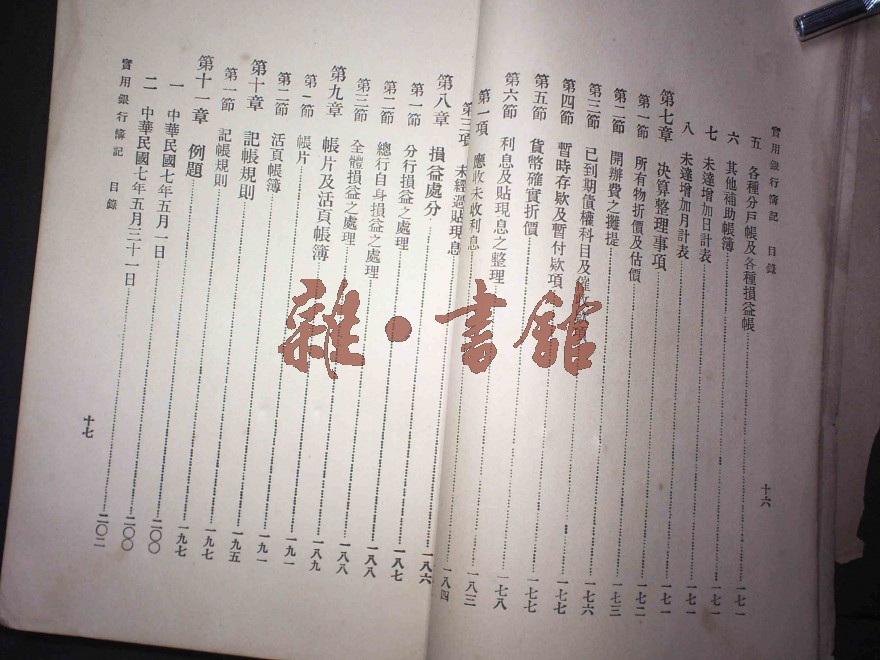 實用銀行簿記 目錄
五 各種分戶帳及各種損益帳 一七一
六 其他補助帳簿 一七一
七 未達增加日計表 一七一
八 未達增加月計表 一七一
第七章 決算整理事項 一七一
第一節 所有物折價及估價 一七二
第二節 開辦費之攤提 一七三
第三節 已到期債權科目及催 一七六
第四節 暫時存款及暫付款項 一七七
第五節 貨幣確實折價 一七七
第六節 利息及貼現息之整理 一七八
第一項 應收未收利息 一八三
第二項 未經過貼現息 一八四
十六
第八章 損益處分 一八六
第一節 分行損益之處理 一八七
第二節 總行自身損益之處理 一八八
第三節 全體損益之處理 一八八
第九章 帳片及活頁帳簿 一八九
第一節 帳片 一九一
第二節 活頁帳簿 一九一
第十章 記帳規則 一九五
第一節 記帳規則 一九七
第十一章 例題 一九七
一 中華民國七年五月一日 二〇〇
二 中華民國七年五月三十一日 二〇〇
二〇二
實用銀行簿記 目錄
十七
雜·書館